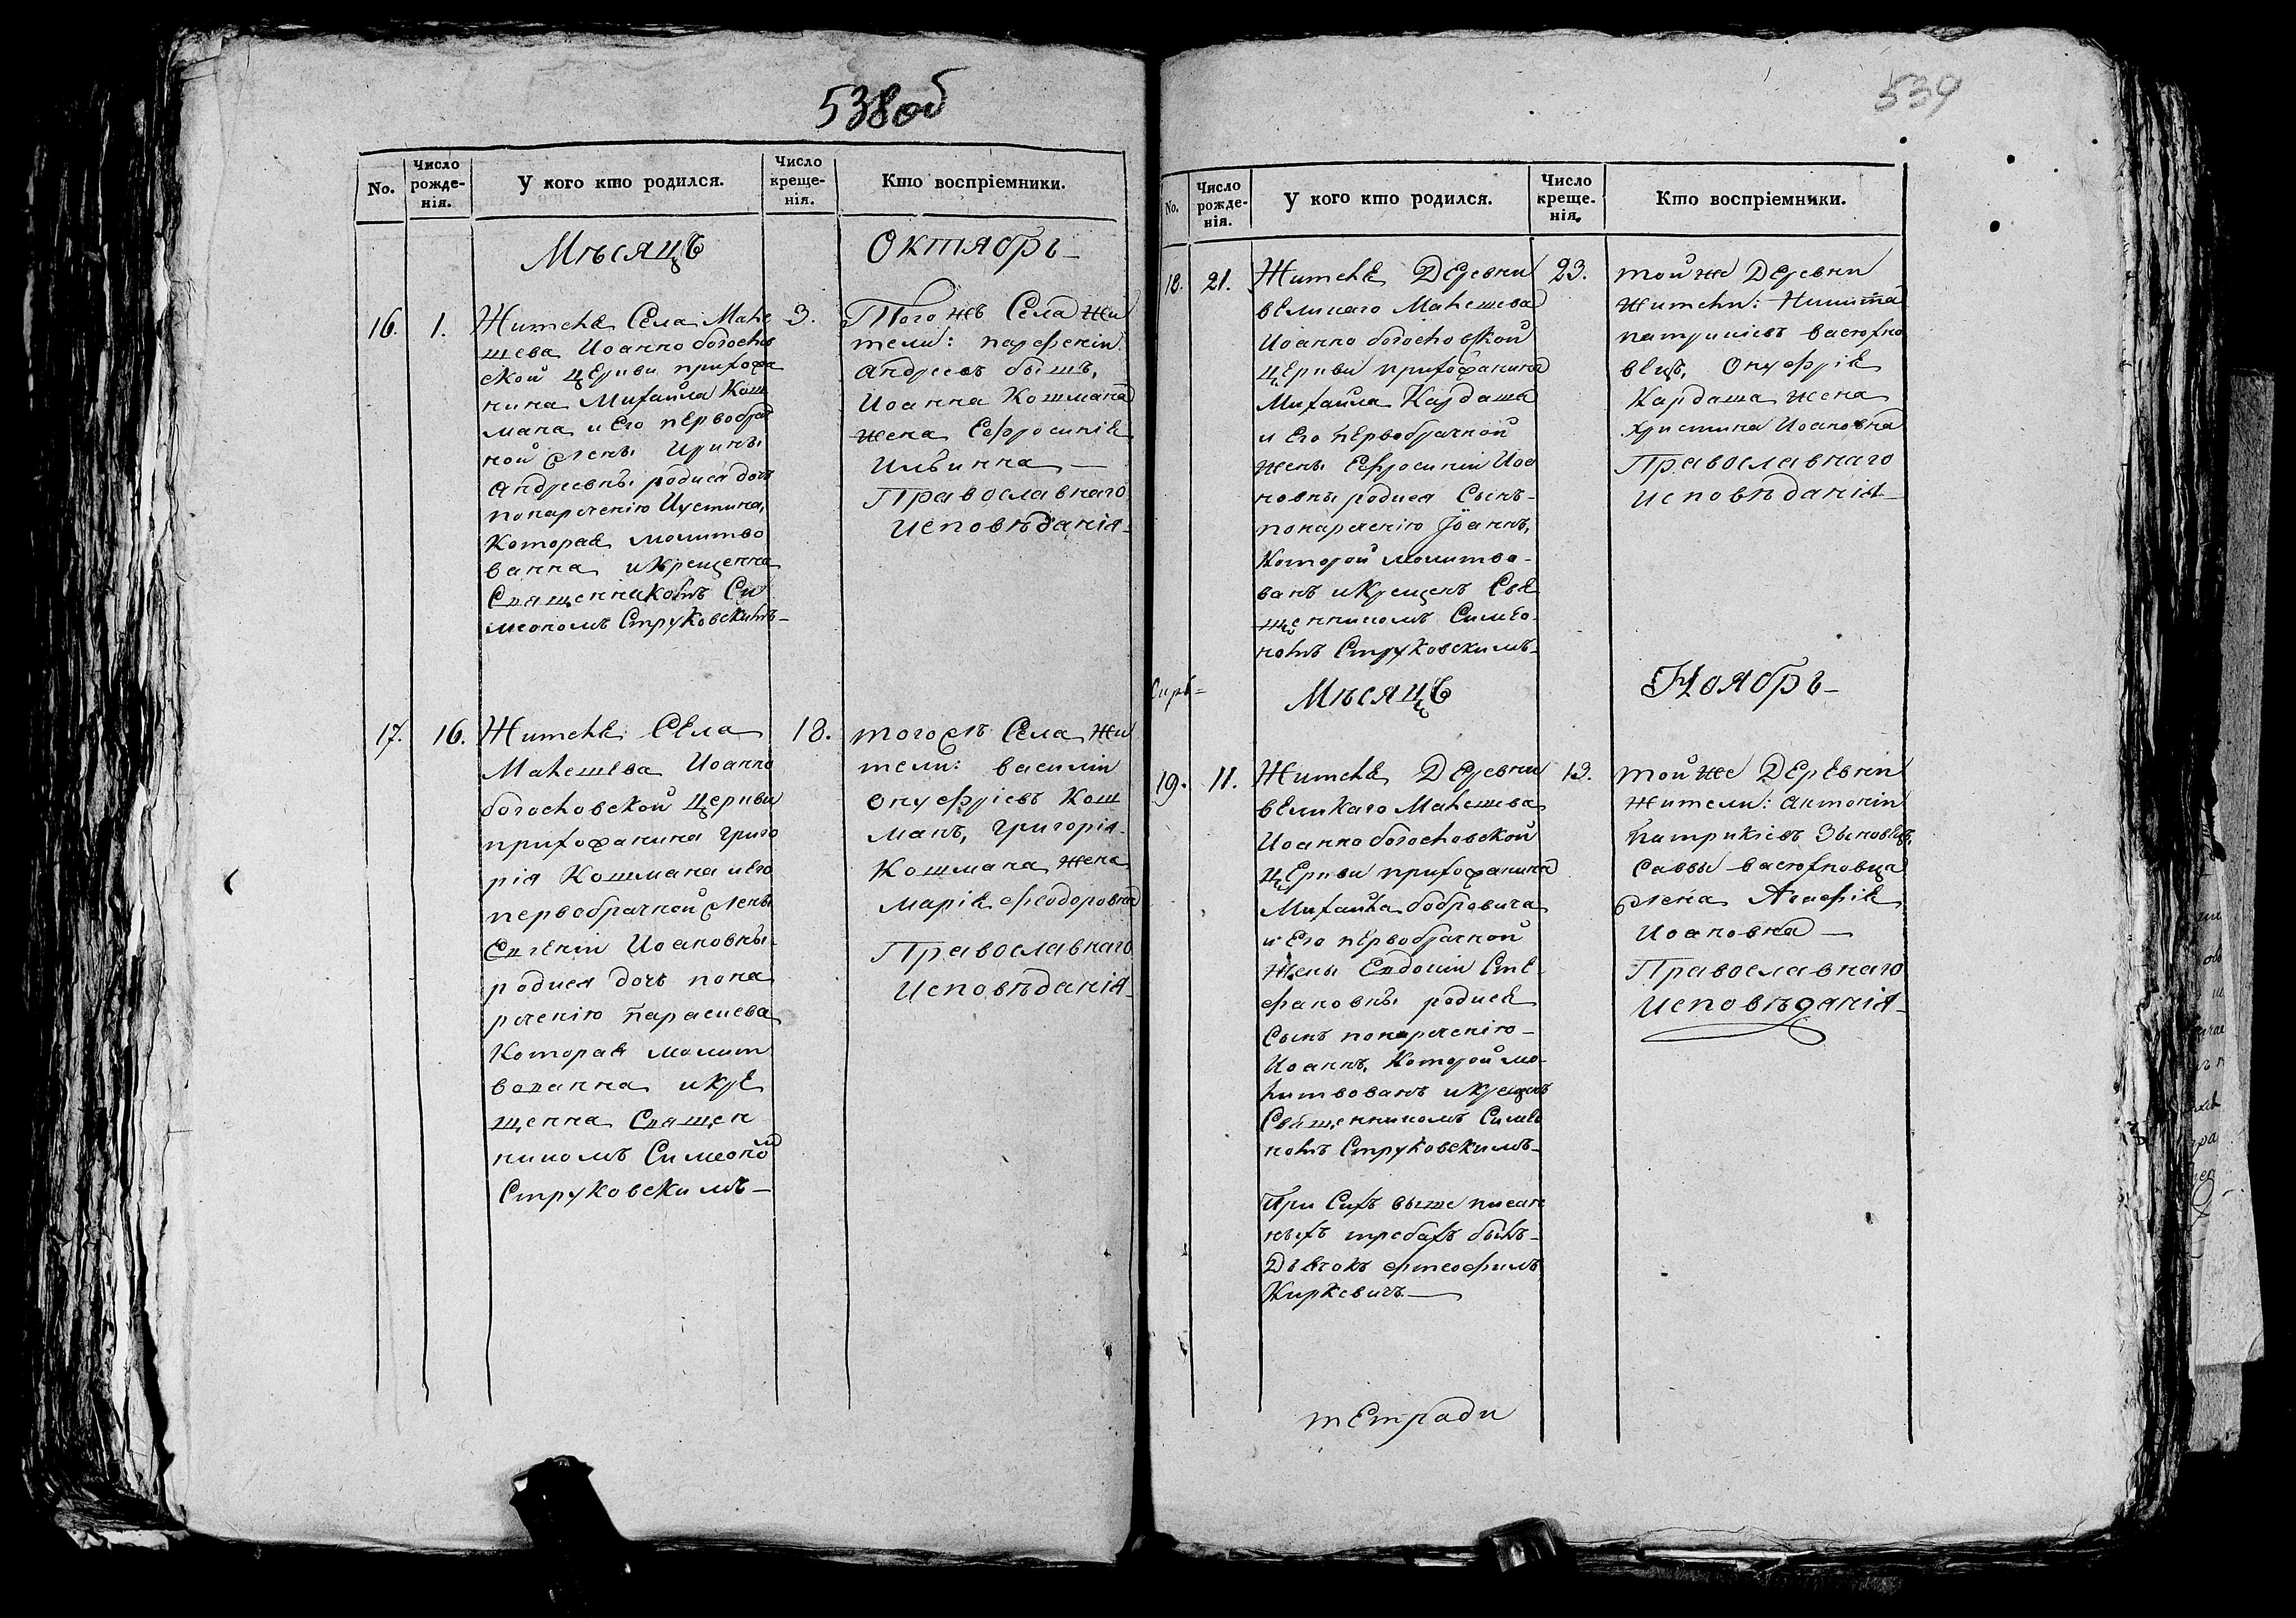 538об
No.
Число рожде-нія.
У кого кто родился.
Число креще-нія.
Кто воспріемники.
Мѣсяцъ
Октябрь
16.
1.
Жителя Села Мале
шева Иоанно богослов
ской Церкви прихожа
нина Михаила Кош
мана и Его первобрач
ной жены Ирины
Андреевны родися дочь
понаречению Иустина,
которая молитво
ванна и крещенна
Священникомъ Си
меономъ Струковскимъ
3.
Того жъ Села жи
тели: парфеній
Андреевъ
Иоанна Кошмана
жена Ефросинія
Ильинна
Православнаго
Исповѣданія
17.
16.
Жителя Села
Малешева Иоанно
богословской Церкви
прихожанина григо
рія Кошмана и его
первобрачной жены
Евгеніи Иоановны
родися дочь пона
реченію Параскева
Которая молит
вованна и кре
щенна Священ
никомъ Симеоном
Струковскимъ
18.
того жъ Села жи
тели: василіи
Онуфріевъ Кош
манъ, григорія
Кошмана жена
Марія феодоровна
Православнаго
Исповѣданія
539
No.
Число рожде-нія.
У кого кто родился.
Число креще-нія.
Кто воспріемники.
18.
21.
Жителя Деревни
великаго Малешева
Иоанно богословской
церкви прихожанина
Михаила Кардаша
и Его первобрачной
жены Ефросиніи Иоа
новны родися Сынъ
понареченію Іоаннъ,
Которой молитво
ванъ и Крещенъ Свя
щенникомъ Симео
номъ Струковскимъ
23.
той же Деревни
жители: Никита
патрикіевъ
Онуфрія
Кардаша жена
христина Иоановна
Православнаго
Исповѣданія
Мѣсяцъ
Ноябрь
19.
11.
Жителя Деревни
великаго Малешева
Иоанно богословской
Церкви прихожанина
Михаила бобровича
и Его первобрачной
жены Евдокіи Сте
фановны родися
Сынъ понареченію
Иоаннъ, Которой мо
литвованъ и крещенъ
Священникомъ Симео
номъ Струковскимъ
При Сихъ выше писан
ныхъ требахъ былъ
Дьячокъ фтеофилъ
Киркевичъ
13.
той же Деревни
жители: Антоній
Патрикіевъ
Саввы
жена Агафія
Иоановна
Православнаго
Исповѣданія
тетради